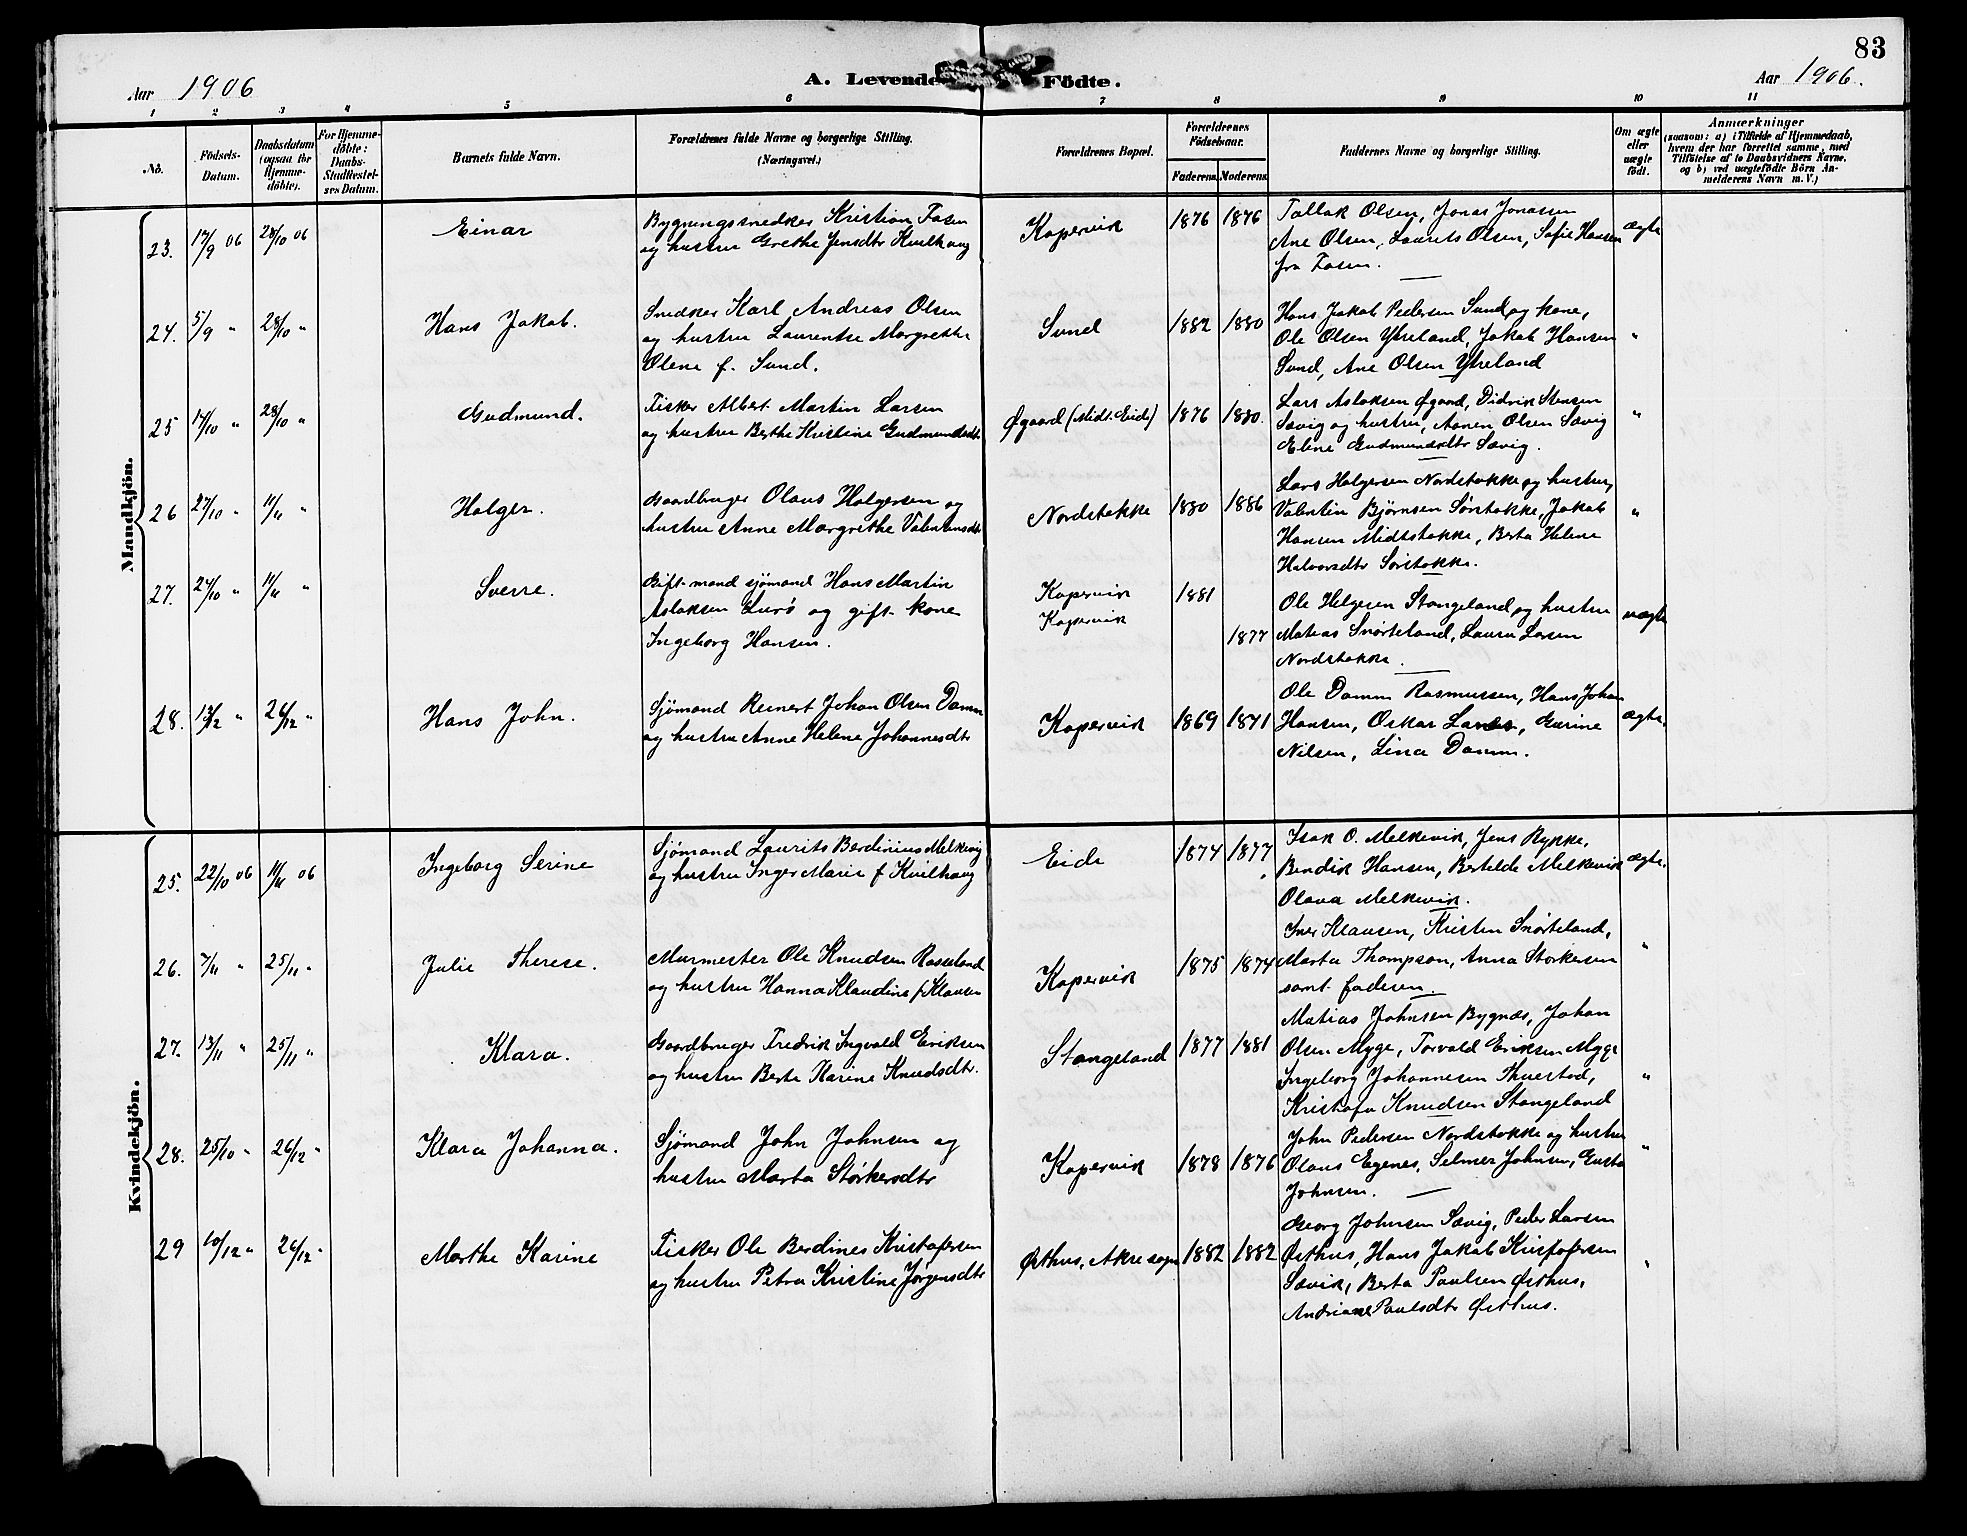 83
Aar 1906
A. Levende Födte.
Aar 1906.
1 2 3 4 5 6 7 8 9 10 11
No.
Födsels-
Datum.
Daabsdatum
(ogsaa for
Hjemme-
döbte).
For Hjemme-
döbte:
Daabs-
Stadfæstel-
ses Datum.
Barnets fulde Navn.
Forældrenes fulde Navne og borgerlige Stilling.
(Næringsvei.)
Forældrenes Bopæl.
Forældrenes
Födselsaar.
Faderens. Moderens.
Faddernes Navne og borgerlige Stilling.
Om ægte
eller
uægte
født.
Anmærkninger
(saasom: a) i Tilfælde af Hjemmedaab,
hvem der har forrettet samme, med
Tilföielse af to Daabsvidners Navne,
og b) ved uægtefödte Börn An-
melderens Navn m. V.)
Mandkjön.
23. 17/9 06 28/10 06 Einar
Bygningssnedker Kristian Fosen
og hustru Grethe Jensdtr Kvilhaug
Kopervik 1876 1876
Tallak Olsen, Jonas Jonassen
Ane Olsen, Laurits Olsen, Sofie Hansen
fra Fosen.
ægte
24. 5/9 " 28/10 " Hans Jakob.
Snedker Karl Andreas Olsen
og hustru Laurentse Margrethe
Olene f. Sund.
Sund 1882 1880
Hans Jakob Pedersen Sund og kone,
Ole Olsen Ytreland, Jakob Hansen
Sund, Ane Olsen Ytreland
"
25 17/10 " 28/10 " Gudmund.
Fisker Albert Martin Larsen
og hustru Berthe Kristine Gudmundsdtr
Øgaard (Midt. Eide) 1876 1880.
Lars Aslaksen Øgaard, Didrik Stensen
Sævig og hustru, Aanen Olsen Sævig
Elene Gudmundsdtr Sævig.
"
26 27/10 " 11/11 " Holger.
Gaardbruger Olaus Holgersen og
hustru Anne Margrethe Valentinsdtr
Nordstokke 1880 1886
Lars Holgersen Nordstokke og hustru,
Valentin Bjørnsen Sørstokke, Jakob
Hansen Midtstokke, Berta Helene
Halvorsdtr Sørstokke.
"
27. 24/10 " 11/11 " Sverre.
Gift mand sjömand Hans Martin
Aslaksen Lurö og gift kone
Ingeborg Hansen.
Kopervik
Kopervik
1881
1877
Ole Helgesen Stangeland og hustru
Matias Snørteland, Laura Larsen
Nordstokke.
uægte
28. 13/2 " 26/12 " Hans John.
Sjömand Reinert Johan Olsen Damm
og hustru Anne Helene Johannesdtr
Kopervik 1869 1871
Ole Damm Rasmussen, Hans Johan
Hansen, Oskar Lanes, Gurine
Nilsen, Lina Damm.
ægte.
Kvindekjön.
25. 22/10 06 11/11 06 Ingeborg Serine
Sjømand Laurits Berdinius Melkevig
og hustru Inger Marie f Kvilhaug
Eide 1874 1877
Isak O. Melkevik, Jens Rykke,
Bendik Hansen, Bertilde Melkevik
Olava Melkevik.
ægte.
26. 7/11 " 25/11 " Julie Therese.
Murmester Ole Knudsen Rosseland
og hustru Hanna Klaudine f Klausen
Kopervik 1875 1874
Iver Klausen, Kristen Snørteland,
Marta Thompson, Anna Størkersen
samt faderen.
"
27. 13/11 " 25/11 " Klara.
Gaardbruger Fredrik Ingvald Eriksen
og hustru Berta Karine Knudsdtr.
Stangeland 1877 1881
Matias Johnsen Bygnæs, Johan
Olsen Myge, Torvald Eriksen Myge
Ingeborg Johannesen Thuestad,
Kristofa Knudsen Stangeland
"
28. 25/10 " 26/12 " Klara Johanna.
Sjömand John Johnsen og
hustru Marta Størkersdtr
Kopervik 1878 1876
John Pedersen Nordstokke og hustru
Olaus Egenes, Selmer Johnsen, Gusta
Johnsen.
"
29 10/12 " 26/12 " Marthe Karine
Fisker Ole Berdines Kristofersen
og hustru Petra Kristine Jørgensdtr
Østhus, Akre sogn 1882 1882
Georg Johnsen Sævig, Peder Larsen
Østhus, Hans Jakob Kristofersen
Sævik, Berta Paulsen Østhus,
Andriane Paulsdtr Østhus.
"